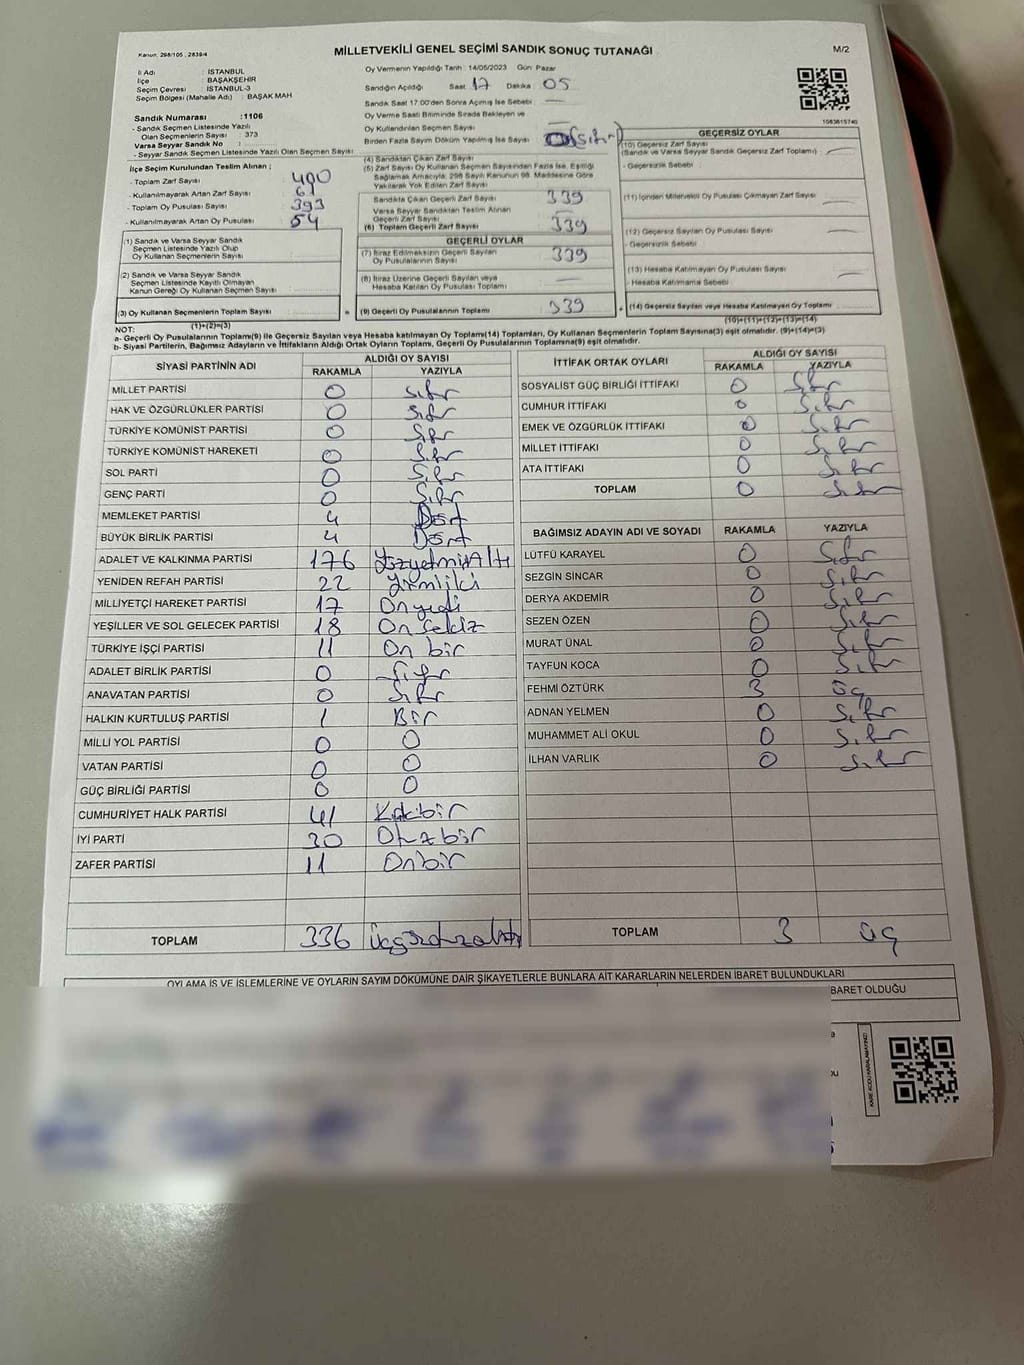 Kanun: 298/105 , 2839/4
MİLLETVEKİLİ GENEL SEÇİMİ SANDIK SONUÇ TUTANAĞI
M/2
İl Adı : İSTANBUL
İlçe : BAŞAKŞEHİR
Seçim Çevresi : İSTANBUL-3
Seçim Bölgesi (Mahalle Adı) : BAŞAK MAH
Oy Vermenin Yapıldığı Tarih : 14/05/2023 Gün: Pazar
Sandığın Açıldığı Saat 17 Dakika 05
Sandık Saat 17:00'den Sonra Açılmış İse Sebebi
Oy Verme Saati Bitiminde Sırada Bekleyen ve
Oy Kullandırılan Seçmen Sayısı
Birden Fazla Sayım Döküm Yapılmış İse Sayısı (Sıfır)
Sandık Numarası : 1106
- Sandık Seçmen Listesinde Yazılı
Olan Seçmenlerin Sayısı : 373
Varsa Seyyar Sandık No :
- Seyyar Sandık Seçmen Listesinde Yazılı Olan Seçmen Sayısı :
İlçe Seçim Kurulundan Teslim Alınan ;
- Toplam Zarf Sayısı : 400
- Kullanılmayarak Artan Zarf Sayısı : 61
- Toplam Oy Pusulası Sayısı : 393
- Kullanılmayarak Artan Oy Pusulası : 54
(1) Sandık ve Varsa Seyyar Sandık
Seçmen Listesinde Yazılı Olup
Oy Kullanan Seçmenlerin Sayısı
(2) Sandık ve Varsa Seyyar Sandık
Seçmen Listesinde Kayıtlı Olmayan
Kanun Gereği Oy Kullanan Seçmen Sayısı
(3) Oy Kullanan Seçmenlerin Toplam Sayısı =
(1)+(2)=(3)
(4) Sandıktan Çıkan Zarf Sayısı
(5) Zarf Sayısı Oy Kullanan Seçmen Sayısından Fazla İse, Eşitliği
Sağlamak Amacıyla, 298 Sayılı Kanunun 98. Maddesine Göre
Yakılarak Yok Edilen Zarf Sayısı
Sandıkta Çıkan Geçerli Zarf Sayısı 339
Varsa Seyyar Sandıktan Teslim Alınan
Geçerli Zarf Sayısı
(6) Toplam Geçerli Zarf Sayısı 339
GEÇERLİ OYLAR
(7) İtiraz Edilmeksizin Geçerli Sayılan
Oy Pusulalarının Sayısı 339
(8) İtiraz Üzerine Geçerli Sayılan veya
Hesaba Katılan Oy Pusulası Toplamı
(9) Geçerli Oy Pusulalarının Toplamı 339 +
1083815740
GEÇERSİZ OYLAR
(10) Geçersiz Zarf Sayısı
(Sandık ve Varsa Seyyar Sandık Geçersiz Zarf Toplamı)
- Geçersizlik Sebebi
(11) İçinden Milletvekili Oy Pusulası Çıkmayan Zarf Sayısı
(12) Geçersiz Sayılan Oy Pusulası Sayısı
- Geçersizlik Sebebi
(13) Hesaba Katılmayan Oy Pusulası Sayısı
- Hesaba Katılmama Sebebi
(14) Geçersiz Sayılan veya Hesaba Katılmayan Oy Toplamı
(10)+(11)+(12)+(13)=(14)
NOT:
a- Geçerli Oy Pusulalarının Toplamı(9) ile Geçersiz Sayılan veya Hesaba katılmayan Oy Toplamı(14) Toplamları, Oy Kullanan Seçmenlerin Toplam Sayısına(3) eşit olmalıdır. (9)+(14)=(3)
b- Siyasi Partilerin, Bağımsız Adayların ve İttifakların Aldığı Ortak Oyların Toplamı, Geçerli Oy Pusulalarının Toplamına(9) eşit olmalıdır.
SİYASİ PARTİNİN ADI ALDIĞI OY SAYISI
RAKAMLA YAZIYLA
MİLLET PARTİSİ 0 Sıfır
HAK VE ÖZGÜRLÜKLER PARTİSİ 0 Sıfır
TÜRKİYE KOMÜNİST PARTİSİ 0 Sıfır
TÜRKİYE KOMÜNİST HAREKETİ 0 Sıfır
SOL PARTİ 0 Sıfır
GENÇ PARTİ 0 Sıfır
MEMLEKET PARTİSİ 4 Dört
BÜYÜK BİRLİK PARTİSİ 4 Dört
ADALET VE KALKINMA PARTİSİ 176 Yüzyetmişaltı
YENİDEN REFAH PARTİSİ 22 Yirmiiki
MİLLİYETÇİ HAREKET PARTİSİ 17 Onyedi
YEŞİLLER VE SOL GELECEK PARTİSİ 18 On Sekiz
TÜRKİYE İŞÇİ PARTİSİ 11 On bir
ADALET BİRLİK PARTİSİ 0 Sıfır
ANAVATAN PARTİSİ 0 Sıfır
HALKIN KURTULUŞ PARTİSİ 1 Bir
MİLLİ YOL PARTİSİ 0 0
VATAN PARTİSİ 0 0
GÜÇ BİRLİĞİ PARTİSİ 0 0
CUMHURİYET HALK PARTİSİ 41 Kırkbir
İYİ PARTİ 30 Otuzbir
ZAFER PARTİSİ 11 Onbir
TOPLAM 336 üçyüzotuzaltı
İTTİFAK ORTAK OYLARI ALDIĞI OY SAYISI
RAKAMLA YAZIYLA
SOSYALİST GÜÇ BİRLİĞİ İTTİFAKI 0 Sıfır
CUMHUR İTTİFAKI 0 Sıfır
EMEK VE ÖZGÜRLÜK İTTİFAKI 0 Sıfır
MİLLET İTTİFAKI 0 Sıfır
ATA İTTİFAKI 0 Sıfır
TOPLAM 0 Sıfır
BAĞIMSIZ ADAYIN ADI VE SOYADI RAKAMLA YAZIYLA
LÜTFÜ KARAYEL 0 Sıfır
SEZGİN SİNCAR 0 Sıfır
DERYA AKDEMİR 0 Sıfır
SEZEN ÖZEN 0 Sıfır
MURAT ÜNAL 0 Sıfır
TAYFUN KOCA 0 Sıfır
FEHMİ ÖZTÜRK 3 üç
ADNAN YELMEN 0 Sıfır
MUHAMMET ALİ OKUL 0 Sıfır
İLHAN VARLIK 0 Sıfır
TOPLAM 3 üç
OYLAMA İŞ VE İŞLEMLERİNE VE OYLARIN SAYIM DÖKÜMÜNE DAİR ŞİKAYETLERLE BUNLARA AİT KARARLARIN NELERDEN İBARET BULUNDUKLARI
BARET OLDUĞU
KARE KODU KARALAMAYINIZ!